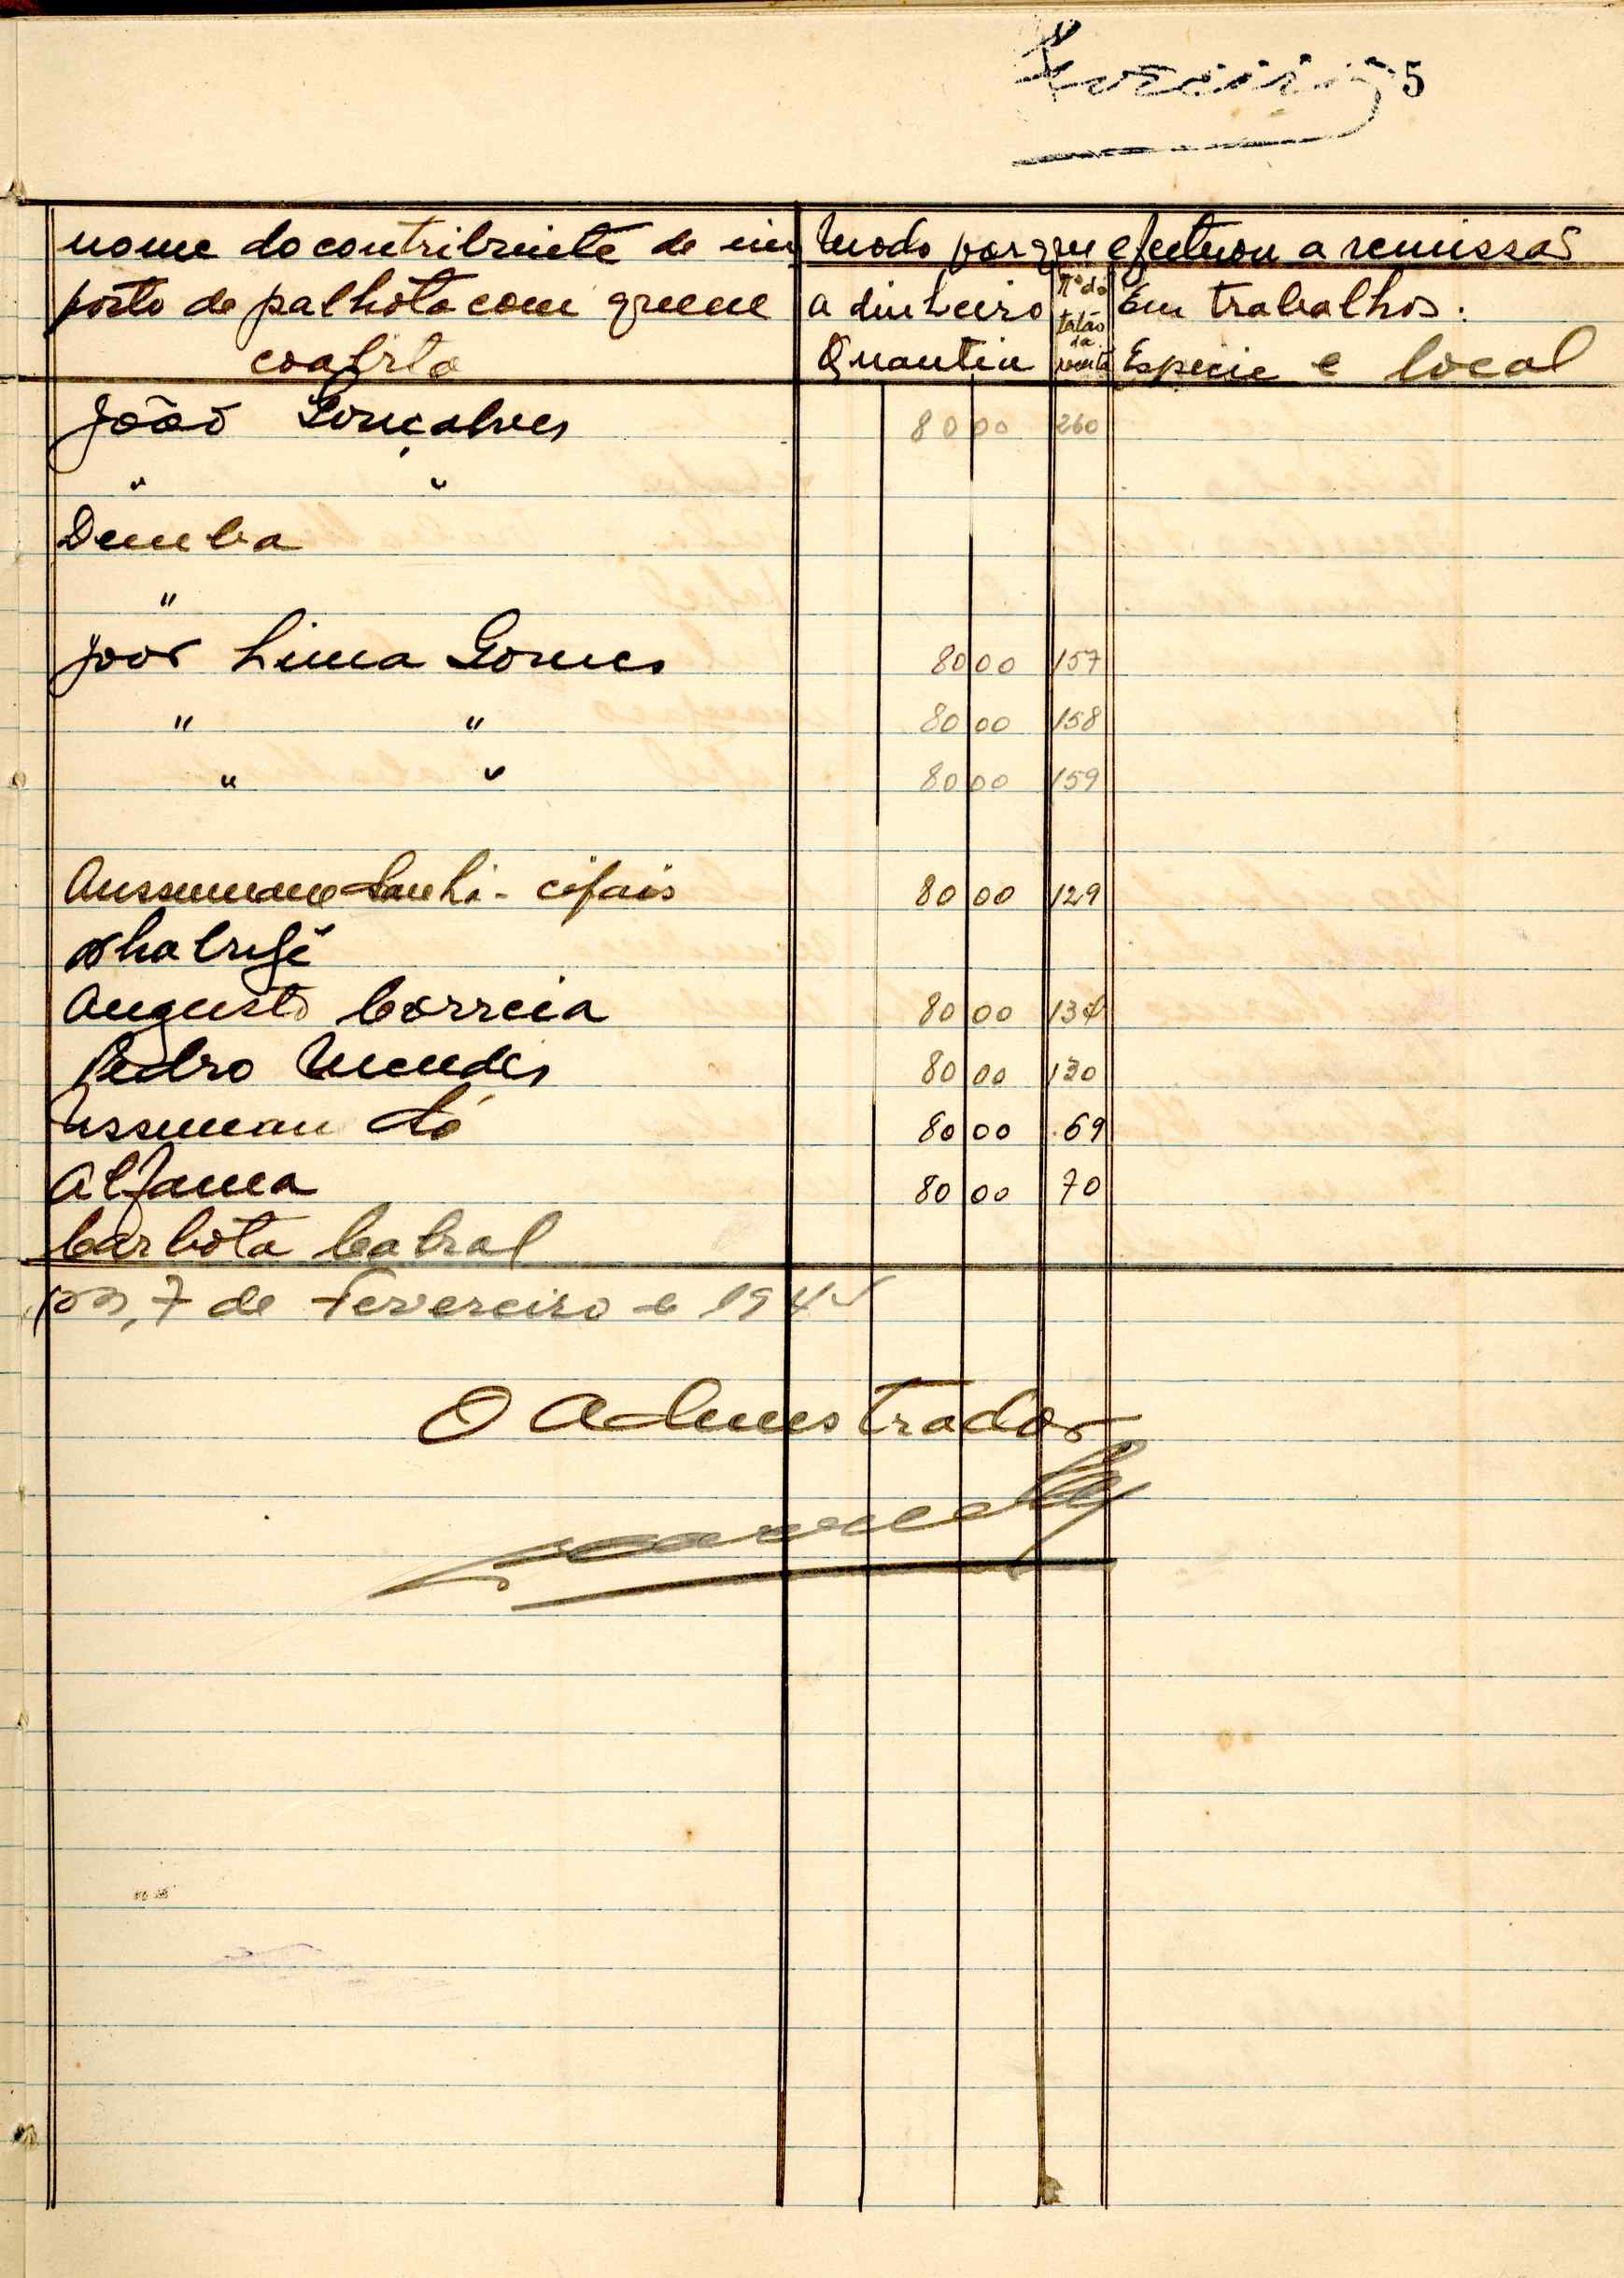 5
nome do contribuinte de im
posto de palhota com quem
coabita
Modo porque efectuou a remissão
a dinheiro
Quantia
Nº do
talão
da
Em trabalhos.
Especie e local
João Gonçalves 80 00 260
" "
Demba
"
João Lima Gomes 80 00 157
" " 80 00 158
" " 80 00 159
Aussumane Sanhá - cipais 80 00 129
Augusto Correia 80 00 13
Pedro Mendes 80 00 130
Ussuman Só 80 00 69
Alfama 80 00 70
Carlota Cabral
7 de Fevereiro de 194
O Admnistrador